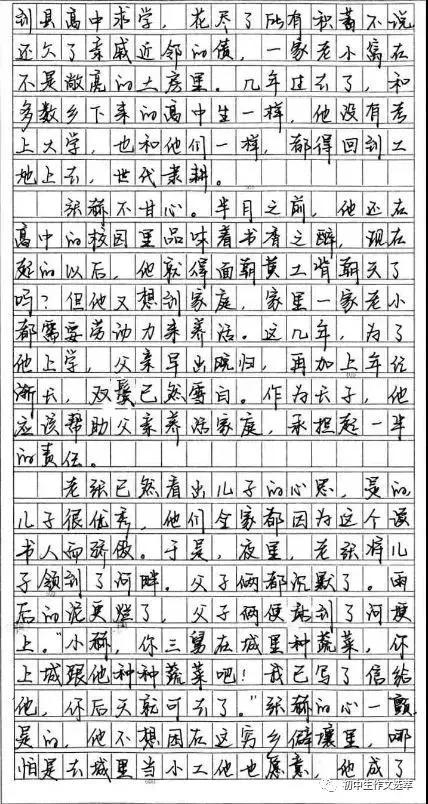 到县高中求学，花尽了所有积蓄不说
还欠了亲戚近邻的债，一家老小窝在
不是敞亮的土房里。几年过去了，和
多数乡下来的高中生一样，他没有考
上大学，也和他们一样，都得回到土
地上去，世代隶耕。
张稣不甘心。半月之前，他还在
高中的校园里品味着书香之醉，现在
起的以后，他就得面朝黄土背朝天了
吗？但他又想到家庭，家里一家老小
都需要劳动力来养活。这几年，为了
他上学，父亲早出晚归，再加上年纪
渐长，双鬓已然雪白。作为长子，他
应该帮助父亲养活家庭，承担起一半
的责任。
老张已然看出儿子的心思，是的
儿子很优秀，他们全家都因为这个读
书人而骄傲。于是，夜里，老张将儿
子领到了河畔。父子俩都沉默了。雨
后的泥更烂了，父子俩便踏到了河埂
上。“小稣，你三舅在城里种蔬菜，你
上城跟他种种蔬菜吧！我已写了信给
他，你后天就可去了。”张稣的心一颤
是的，他不想困在这穷乡僻壤里，哪
怕是去城里当小工他也愿意，他成了
初中生作文选萃